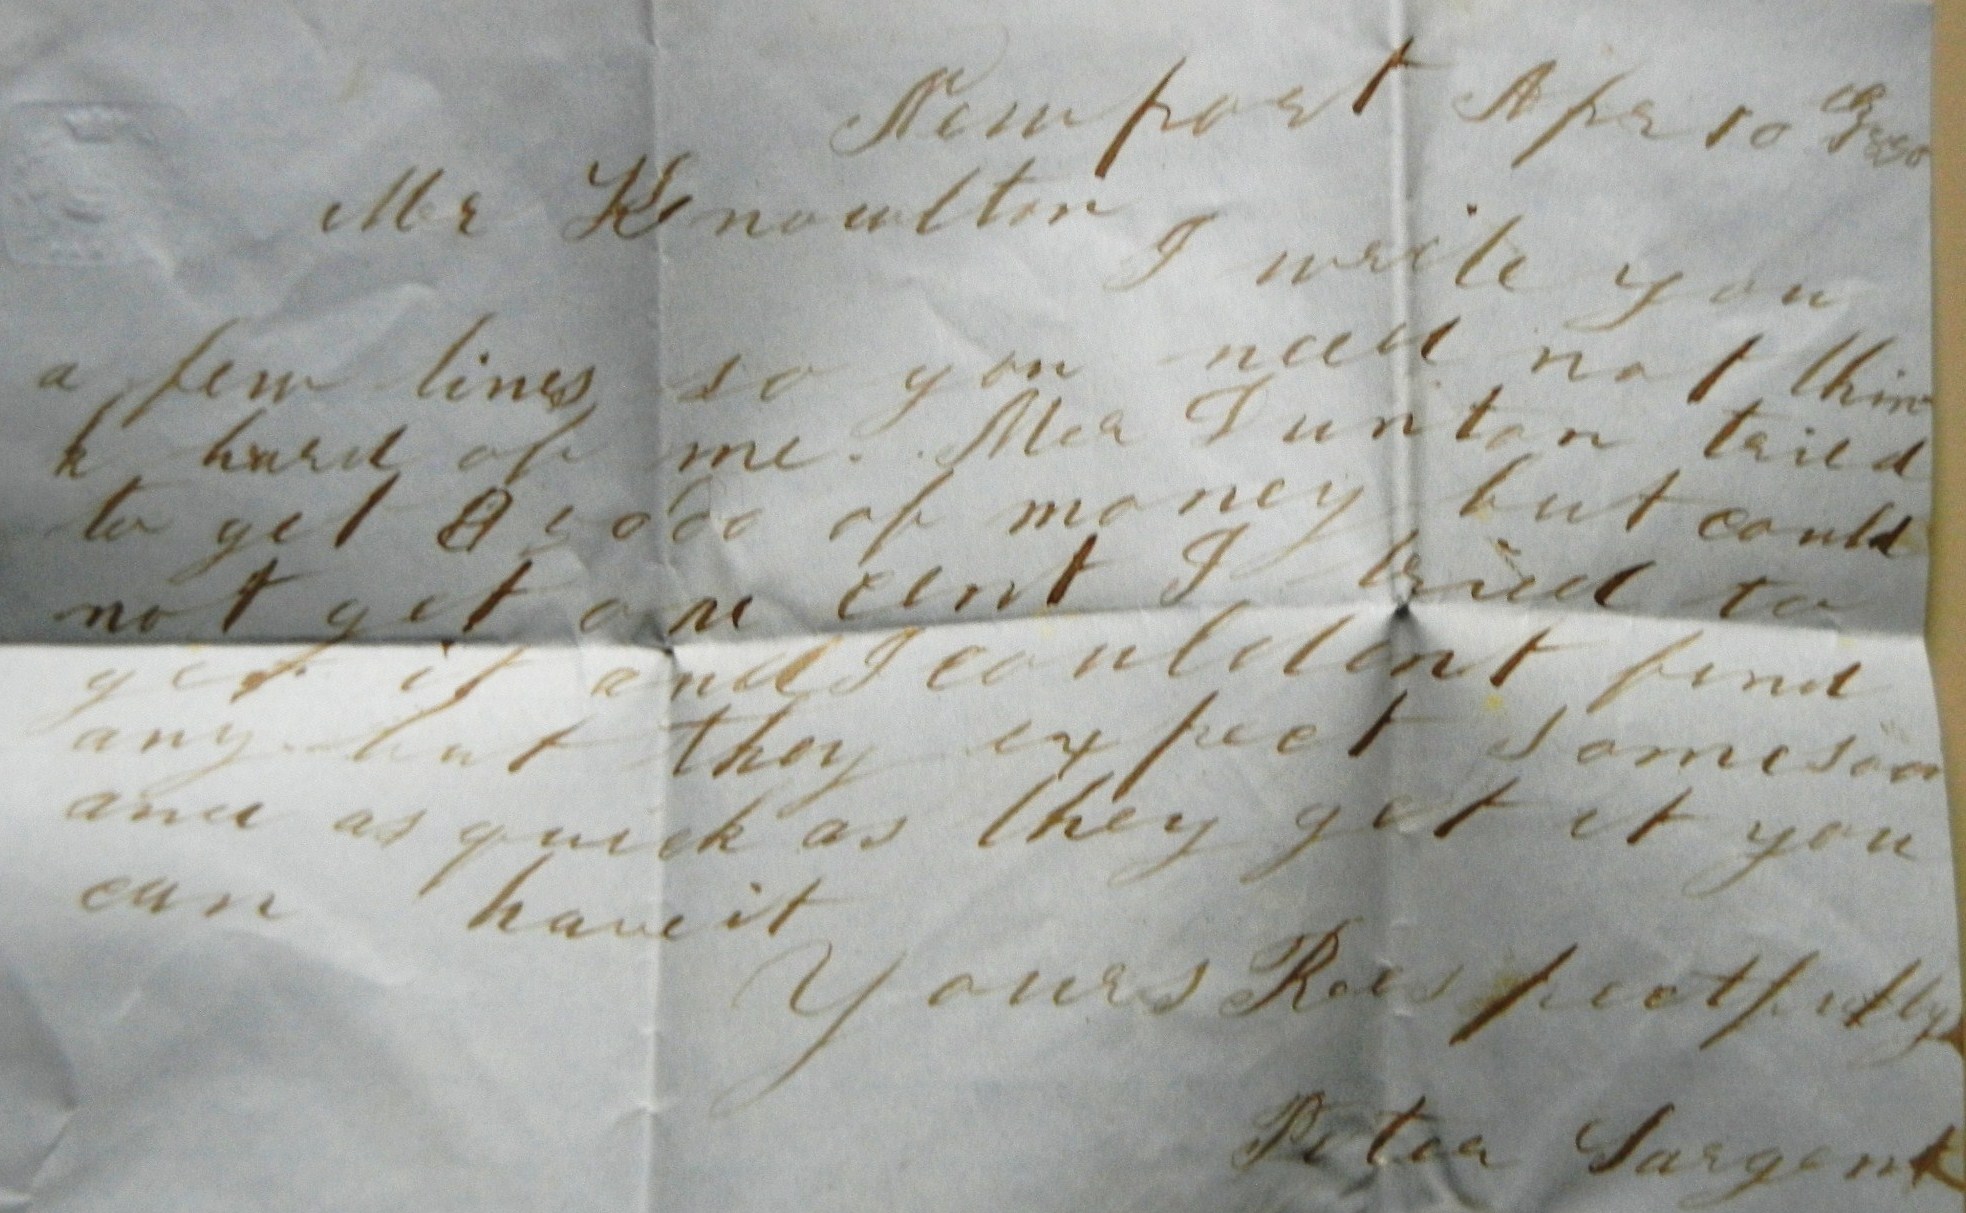 Newport Apr 10th
Mr Knowlton
I write you
a few lines so you need not thin
k hard of me. Mr Dunton tried
to get of money but could
not get one cent I tried to
get it and I couldent find
any but they expect some soon
and as quick as they get it you
can have it
Yours Respectfully
Peter Sargent